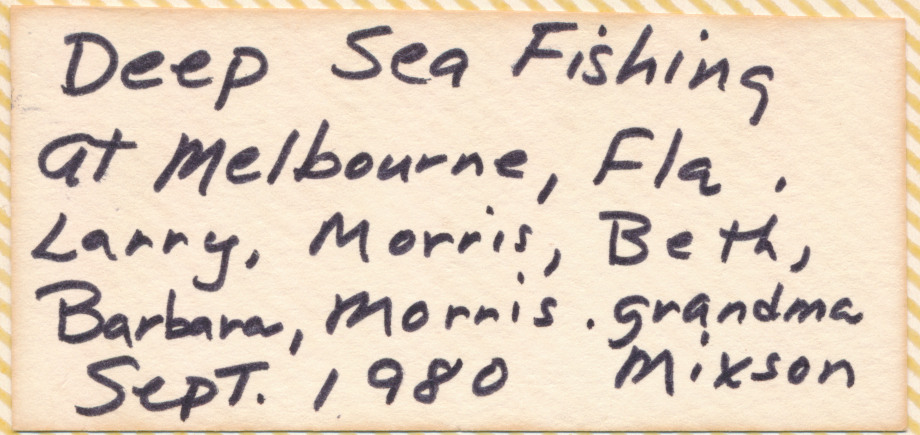 Deep Sea Fishing
at Melbourne, Fla.
Larry, Morris, Beth,
Barbara, Morris. grandma
Sept. 1980 Mixson